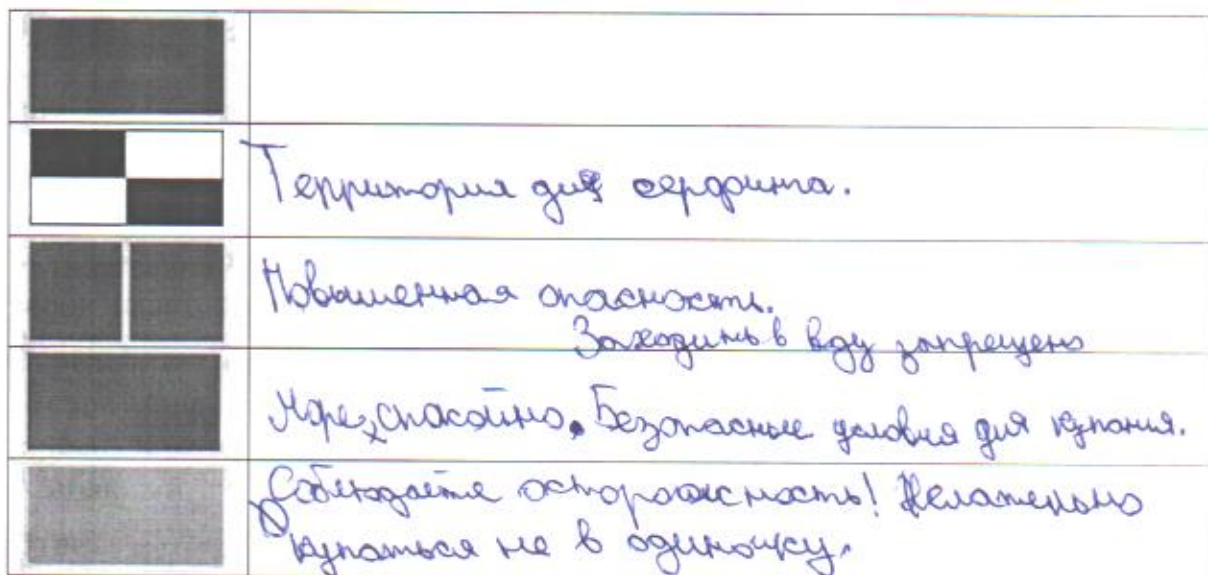 Территория для серфинга.
Повышенная опасность.
Заходить в воду запрещено
Море спокойно. Безопасные условия для купания.
Соблюдайте осторожность! Желательно
купаться не в одиночку.